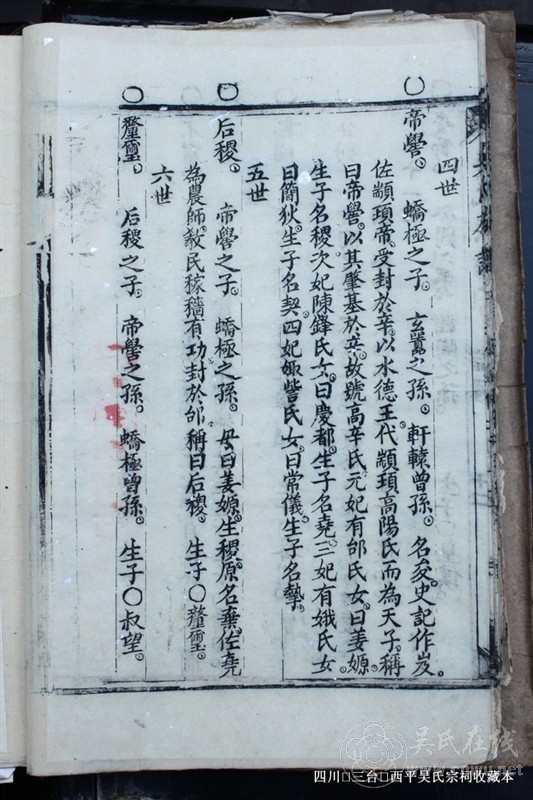 四世
○帝嚳。蟜極之子。玄囂之孫。軒轅曾孫。名夋。史記作岌。
佐顓頊帝。受封於辛。以水德王。代顓頊高陽氏而為天子。稱
曰帝嚳。以其肇基於辛。故號高辛氏。元妃有邰氏女。曰姜嫄。
生子名稷。次妃陳鋒氏女。曰慶都。生子名堯。三妃有娥氏女
曰簡狄。生子名契。四妃娵訾氏女。曰常儀。生子名摯。
五世
○后稷。帝嚳之子。蟜極之孫。母曰姜嫄。生稷。原名棄。佐堯
為農師。敎民稼穡有功。封於邰。稱曰后稷。生子○釐璽。
六世
○釐璽。后稷之子。帝嚳之孫。蟜極曾孫。生子○叔望。
吴氏在线
四川□三台□西平吴氏宗祠收藏本